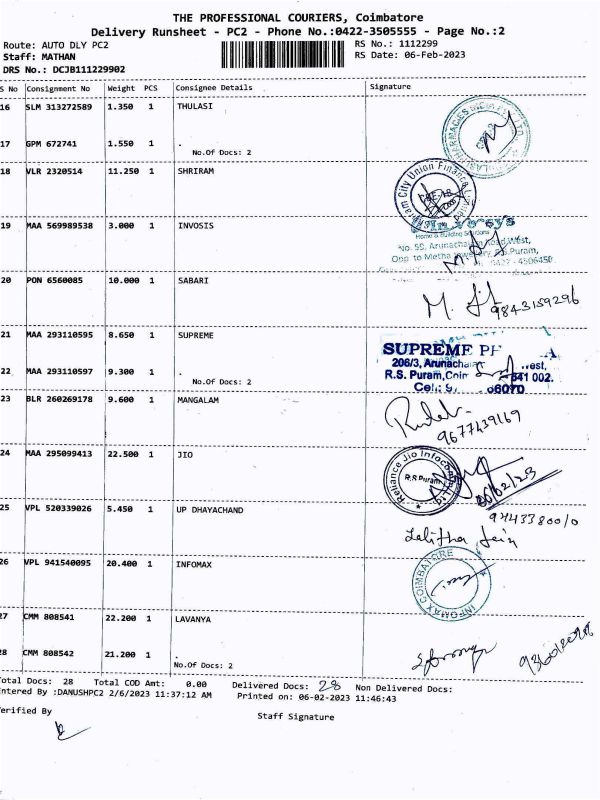 THE PROFESSIONAL COURIERS, Coimbatore
Delivery Runsheet - PC2 - Phone No.:0422-3505555 - Page No.:2
Route: AUTO DLY PC2
RS No.: 1112299
Staff: MATHAN
RS Date: 06-Feb-2023
DRS No.: DCJB111229902
S No Consignment No Weight PCS Consignee Details Signature
16 SLM 313272589 1.350 1 THULASI
17 GPM 672741 1.550 1 .
No.Of Docs: 2
18 VLR 2320514 11.250 1 SHRIRAM
City Union Finance
19 MAA 569989538 3.000 1 INVOSIS
Home & Building Solutions
No. 59, Arunachalam Road West,
Opp. to Metha Jewellery, R.S.Puram,
0422 - 4506450
20 PON 6560085 10.000 1 SABARI
9843159296
21 MAA 293110595 8.650 1 SUPREME
SUPREME PH
206/3, Arunacha West,
R.S. Puram, Coim 641 002.
Cell: 9 06070
22 MAA 293110597 9.300 1 .
No.Of Docs: 2
23 BLR 260269178 9.600 1 MANGALAM
9677439169
24 MAA 295099413 22.500 1 JIO
Reliance Jio Infocomm
R.S.Puram
06/02/23
25 VPL 520339026 5.450 1 UP DHAYACHAND
9443380010
Lalitha Jain
26 VPL 941540095 20.400 1 INFOMAX
INFOMAX COIMBATORE
27 CMM 808541 22.200 1 LAVANYA
28 CMM 808542 21.200 1 .
No.Of Docs: 2
Total Docs: 28 Total COD Amt: 0.00 Delivered Docs: 28 Non Delivered Docs:
Entered By :DANUSHPC2 2/6/2023 11:37:12 AM Printed on: 06-02-2023 11:46:43
Verified By
Staff Signature